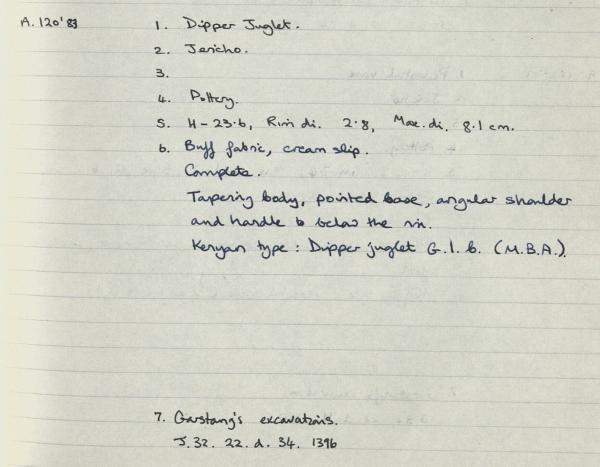 A. 120'83
1. Dipper Juglet.
2. Jericho.
3.
4. Pottery.
5. H - 23·6, Rim di. 2·8, Max. di. 8·1 cm.
6. Buff fabric, cream slip.
Complete.
Tapering body, pointed base, angular shoulder
and handle to below the rim.
Kenyan type : Dipper juglet G.1.b. (M.B.A.).
7. Garstang's excavations.
J. 32. 22. d. 34. 1396